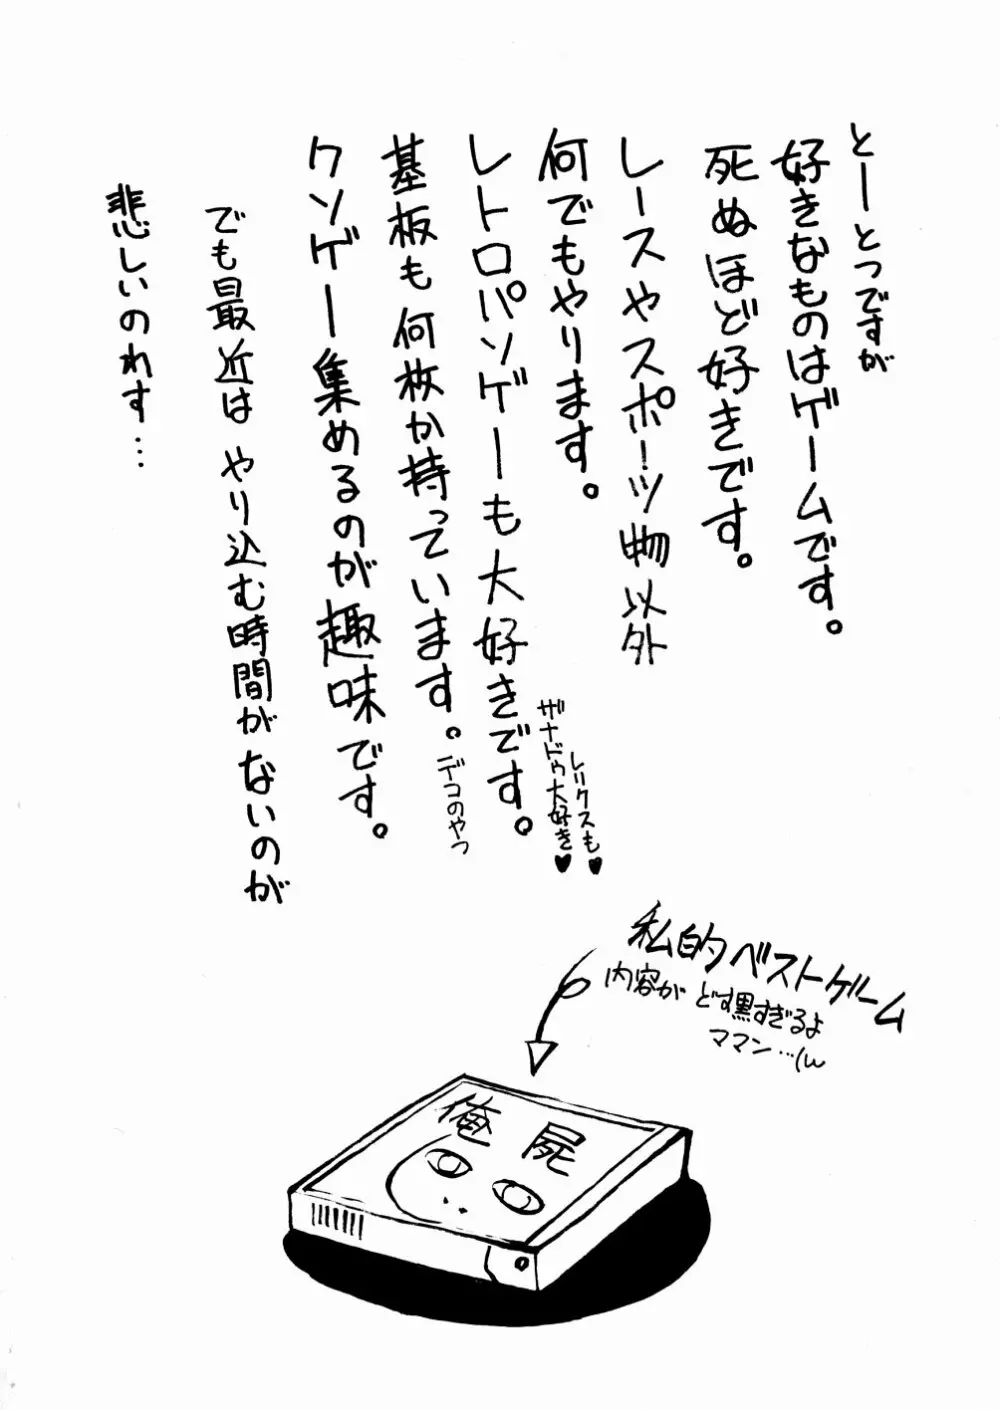 とーとつですが
好きなものはゲームです。
死ぬほど好きです。
レースやスポーツ物以外
何でもやります。
レトロパソゲーも大好きです。
ザナドゥ大好き♥
レリクスも♥
基板も何枚か持っています。
デコのやつ
クソゲー集めるのが趣味です。
でも最近はやり込む時間がないのが
悲しいのれす…
私的ベストゲーム
内容がどす黒すぎるよ
ママン…(w
俺屍